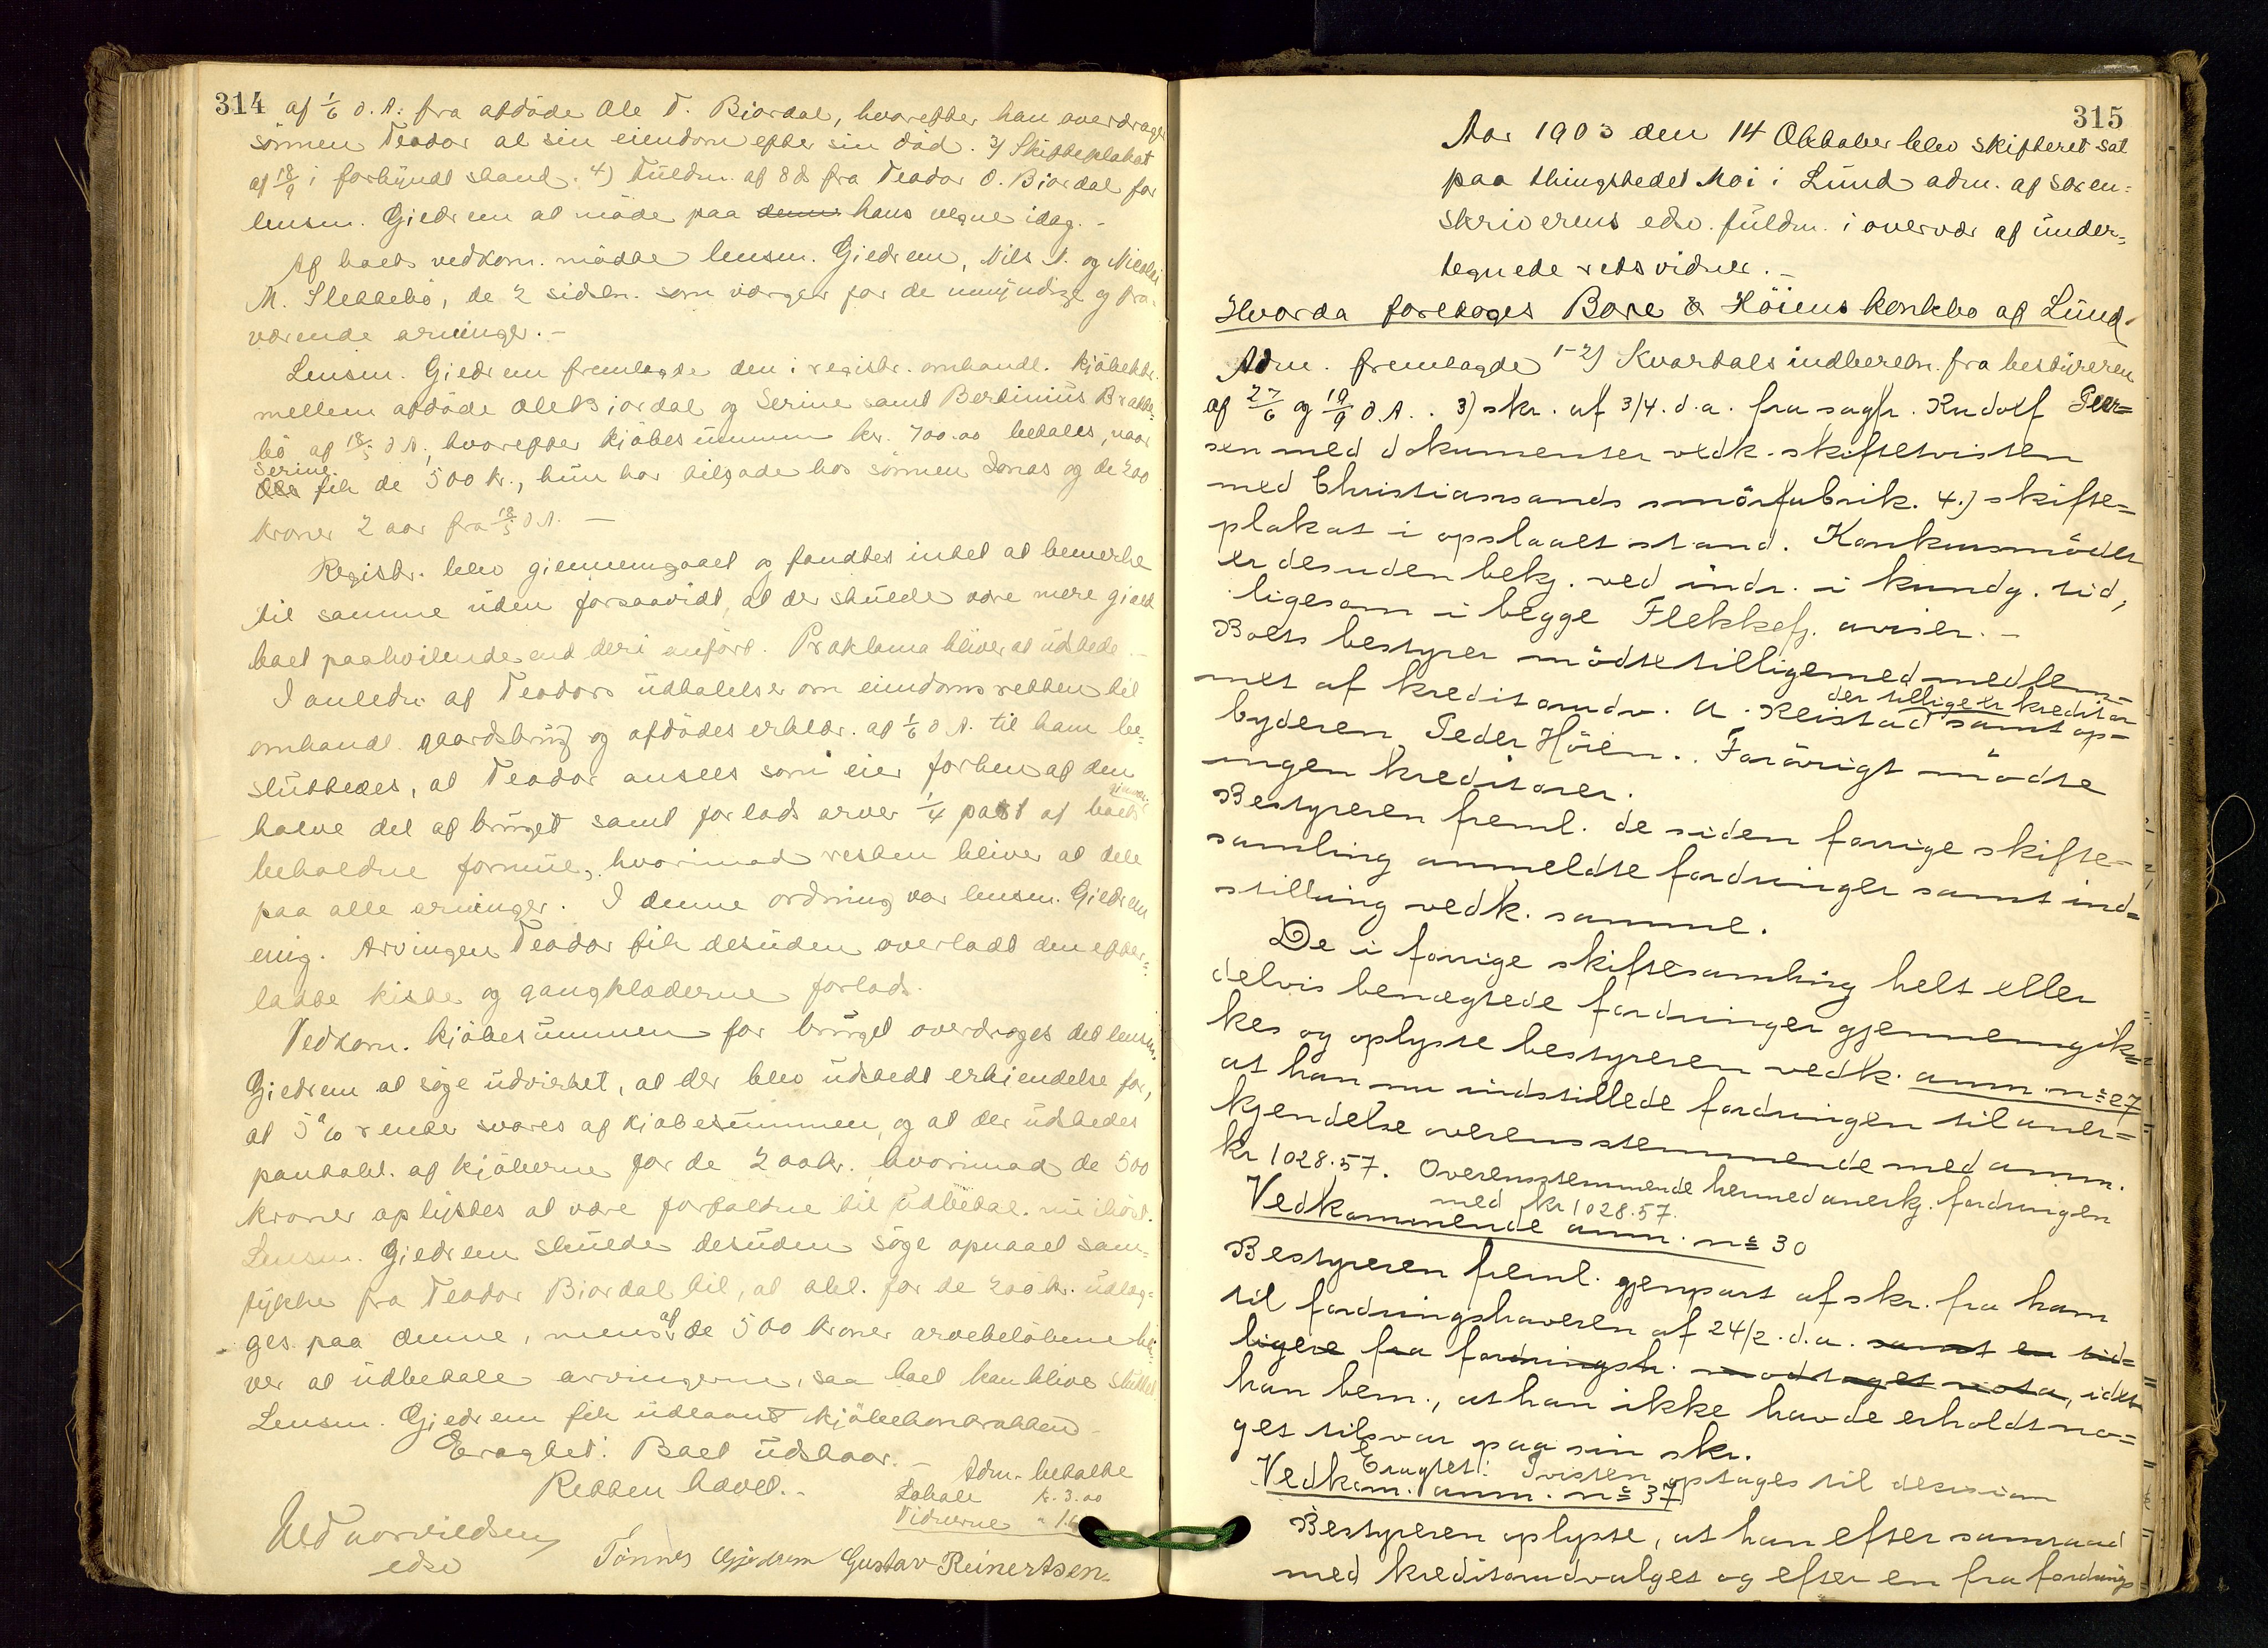 314
af 1/6 d.A. fra afdöde Ole T. Bjordal, hvorefter han overdrager
sönnen Teodor al sin eiendom efter sin död. 3) Skifteplakat
af 18/9 i forkyndt stand. 4) Fuldm. af 8 ds fra Teodor O. Bjordal for
lensm. Gjedrem at möde paa denne hans vegne idag. -
Af boets vedkom. mödte lensm. Gjedrem, Nils N. og Nicolai
M. Slettebö, de 2 sidstn. som værger for de umyndige og fra-
værende arvinger. -
Lensm. Gjedrem fremlagde den i registr. omhandl. kjöbektr.
mellem afdöde Ole Bjordal og Serine samt Bertinius Bratte-
bö af 18/5 d A, hvorefter kjöbesummen kr. 700.00 betales, naar
Serine
Ole fik de 500 kr., hun har tilgode hos sönnen Jonas og de 200
kroner 2 aar fra 18/5 d A. -
Registr. blev gjennemgaaet og fandtes intet at bemerke
til samme uden forsaavidt, at der skulde være mere gjæld
boet paahvilende end deri anfört. Proklama bliver at udstede. -
I anledn. af Teodors udtalelser om eiendomsretten til
omhandl. gaardsbrug og afdödes erklær. af 1/6 d A. til ham be-
sluttedes, at Teodor ansees som eier forlen af den
halve del af bruget samt forlods arver 1/4 part af boets
beholdne formue, hvorimod resten bliver at dele
paa alle arvinger. I denne ordning var lensm. Gjedrem
enig. Arvingen Teodor fik desuden overladt den efter-
ladte kiste og gangklæderne forlods.
Vedkom. kjöbesummen for bruget overdroges det lensm.
Gjedrem at söge udvirket, at der blev udstedt erkjendelse for,
at 5 % renter svares af kjöbesummen, og at der udstedes
pantobl. af kjöberne for de 200 kr., hvorimod de 500
kroner oplystes at være forfaldne til udbetal. nu ihöst.
Lensm. Gjedrem skulde desuden söge opnaaet sam-
tykke fra Teodor Bjordal til, at obl. for de 200 kr. udlæg-
ges paa denne, mens af de 500 kroner arvebelöbene bli-
ver at udbetale arvingerne, saa boet kan blive sluttet
Lensm. Gjedrem fik udlaant kjöbekontrakten -
Eragtet: Boet udstaar. -
Retten hævet. -
Adm. betalte
Lokale kr. 3.00
Vidnerne "
edso
Tönnes Gjedrem Gustav Reinertsen.
315
Aar 1903 den 14 Oktober blev skifteret sat
paa thingstedet Moi i Lund adm. af soren-
skriverens edsv. fuldm. i overvær af under-
tegnede retsvidner. -
Hvorda foretoges Bore & Höiens konkbo af Lund.
Adm. fremlagde 1-2) Kvartalsindberetn. fra bestyreren
af 27/6 og 19/9 d.A. . 3) skr. af 3/4. d.a. fra sagfr. Rudolf Peer-
sen med dokumenter vedk. skiftetvisten
med Christianssands smörfabrik. 4.) skifte-
plakat i opslaaet stand. Konkursmödet
er desuden bekj. ved indr. i kundg. tid,
ligesom i begge Flekkefj. aviser. -
Boets bestyrer mödte tilligemed medlem-
met af kreditorudv. A. Reistad der tillige er kreditor samt op-
byderen Peder Höien.. Forövrigt mödte
ingen kreditorer.
Bestyreren freml. de siden forrige skifte-
samling anmeldte fordringer samt ind-
stilling vedk. samme.
De i forrige skiftesamling helt eller
delvis benægtede fordringer gjennemgik-
kes og oplyste bestyreren vedk. anm. no 27
at han nu indstillede fordringen til aner-
kjendelse overensstemmende med anm.
kr 1028.57. Overensstemmende hermed anerkj. fordringen
med kr 1028.57.
Vedkommende anm. no 30
Bestyreren freml. gjenpart af skr. fra ham
til fordringshaveren af 24/2. d.a. samt en tid-
ligere fra fordringsh. modtaget nota, idet
han bem., at han ikke havde erholdt no-
get tilsvar paa sin skr.
Eragtet: Tvisten optages til decision
Vedkom. anm. no 37
Bestyreren oplyste, at han efter samraad
med kreditorudvalget og efter en fra fordrings-